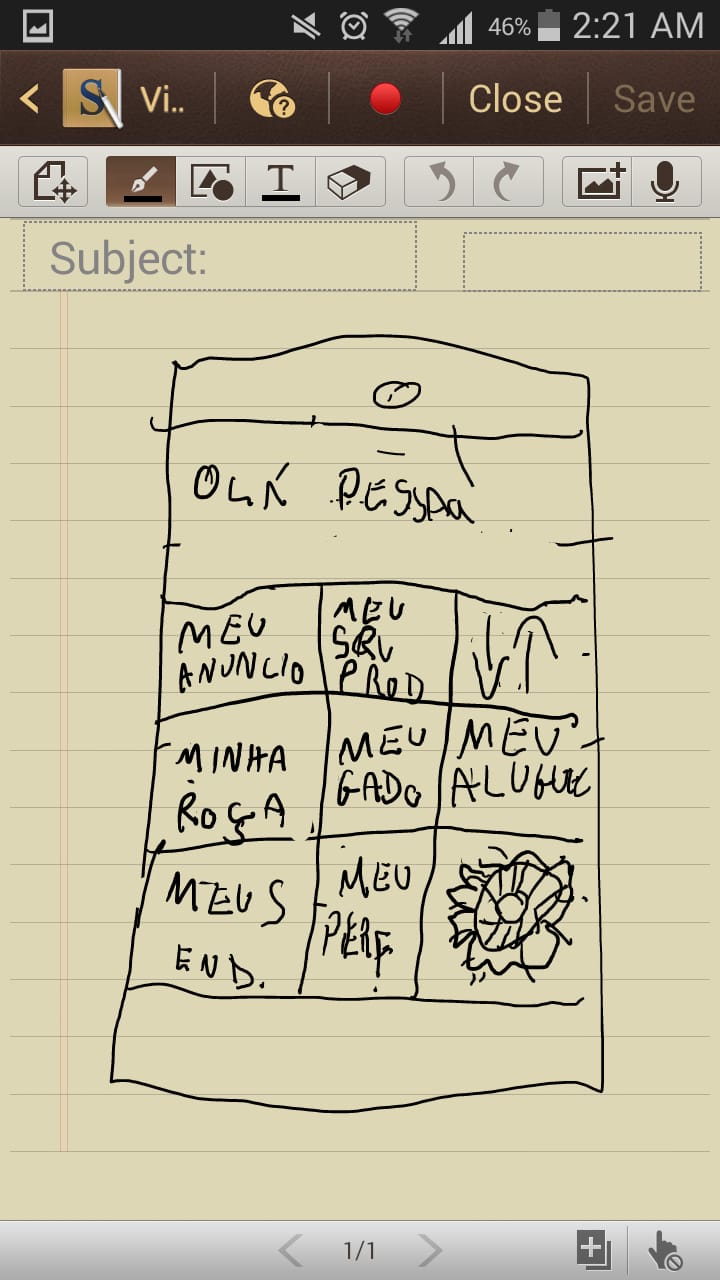 46% 2:21 AM
S Vi.. Close Save
T
Subject:
OLÁ PESSOA
MEU ANUNCIO
MEU SRV PROD
MINHA ROÇA
MEU GADO
MEU ALUGUE
MEUS END.
MEU PERF.
1/1